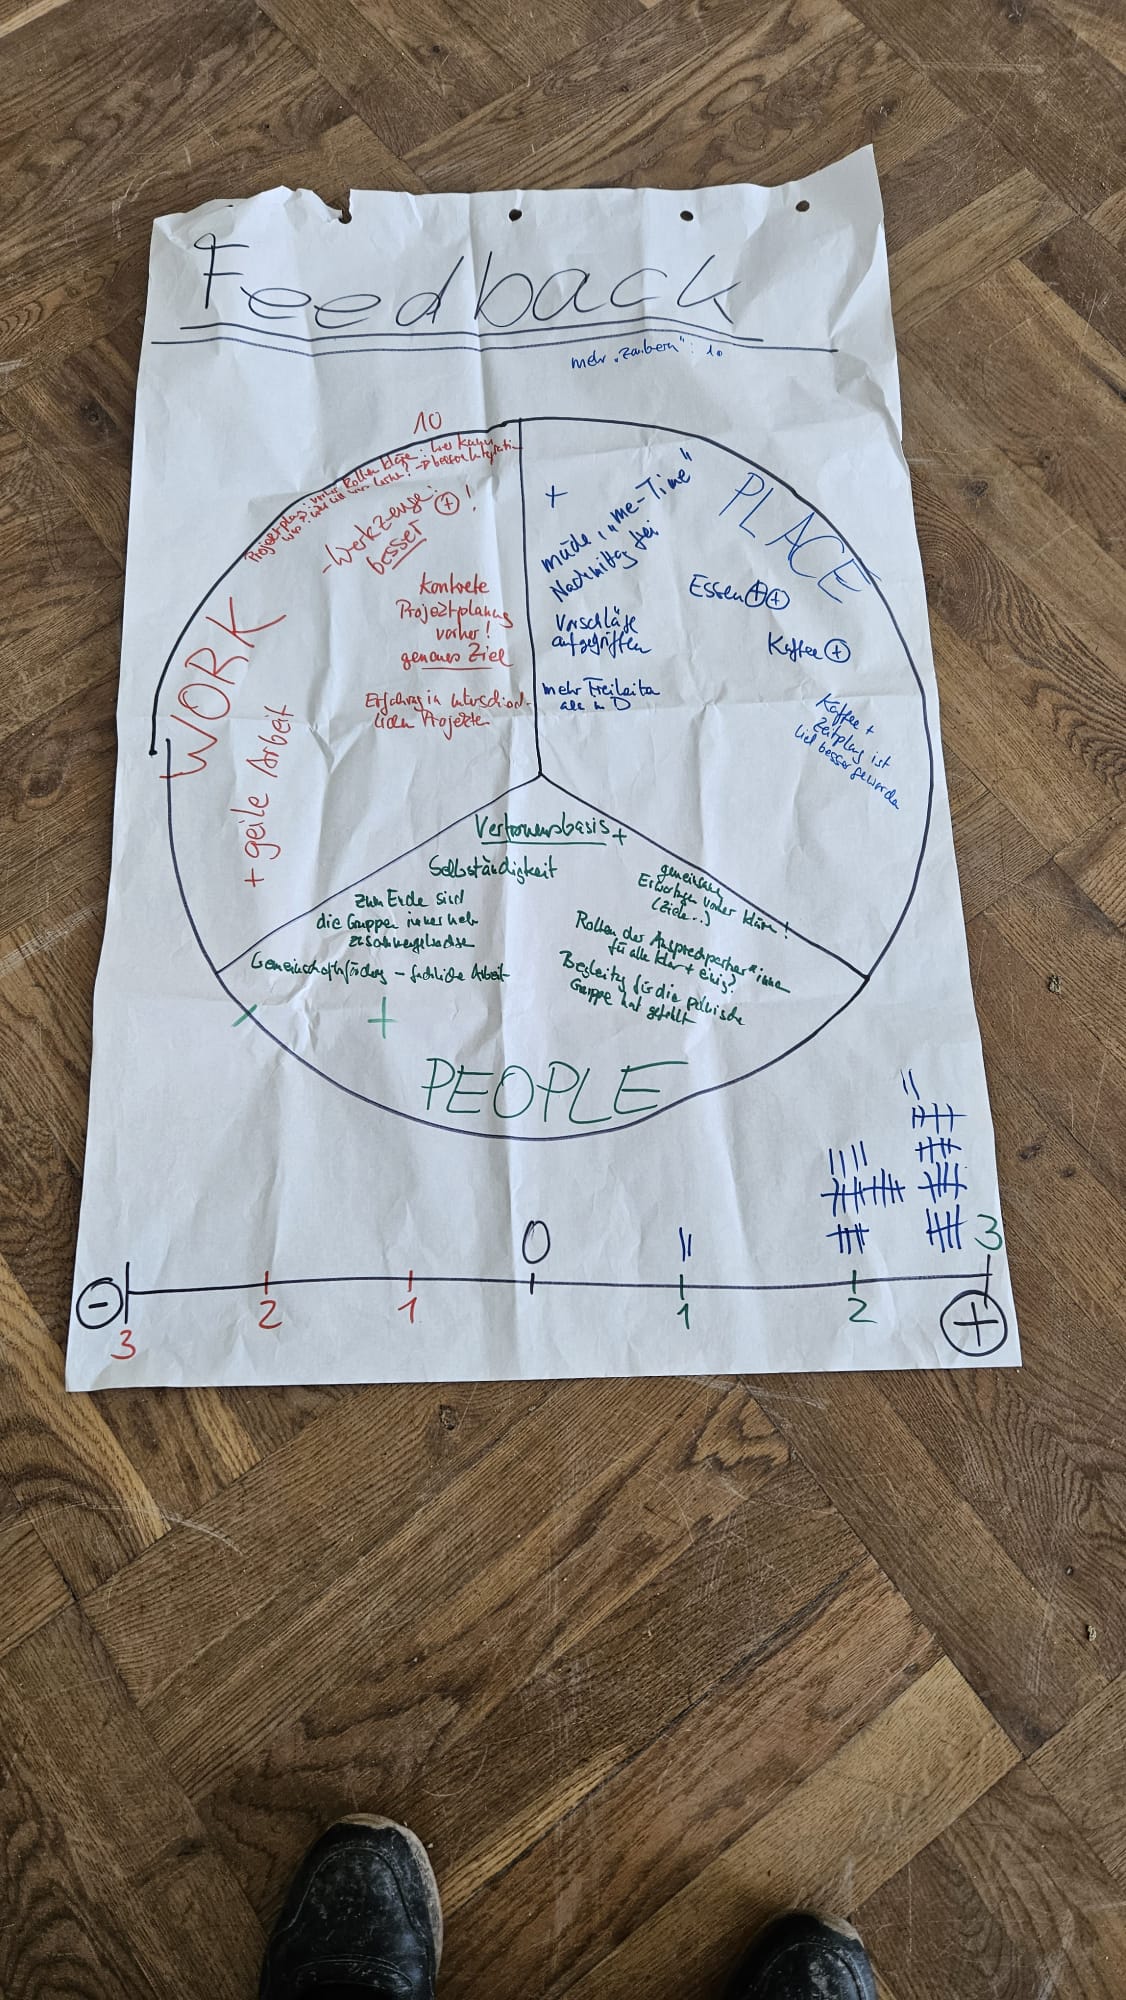 Feedback
mehr "zaubern": 10
10
Projektplanung: vorher Rollen klären: wer kann
was? wer will was → bessere Integration
- Werkzeuge: ⊕!
besser
konkrete
Projektplanung
vorher!
genaues Ziel
Erfahrung in unterschied-
lichen Projekten
WORK
+ geile Arbeit
+
müde, "me-Time"
Nachmittag frei
Vorschläge
aufgegriffen
mehr Freiheiten
als in D
PLACE
Essen ⊕⊕
Kaffee ⊕
Kaffee +
Zeitplan ist
viel besser geworden
Vertrauensbasis +
Selbständigkeit
zum Ende sind
die Gruppen immer mehr
zusammengewachsen
Gemeinschaftsförderung – fachliche Arbeit
+
+
gemeinsame
Erwartungen vorher klären!
(Ziele..)
Rollen der Ansprechpartner*innen
für alle klar + einig?
Begleitung für die polnische
Gruppe hat gefehlt
PEOPLE
0
3
⊖
3
2
1
1
2
⊕